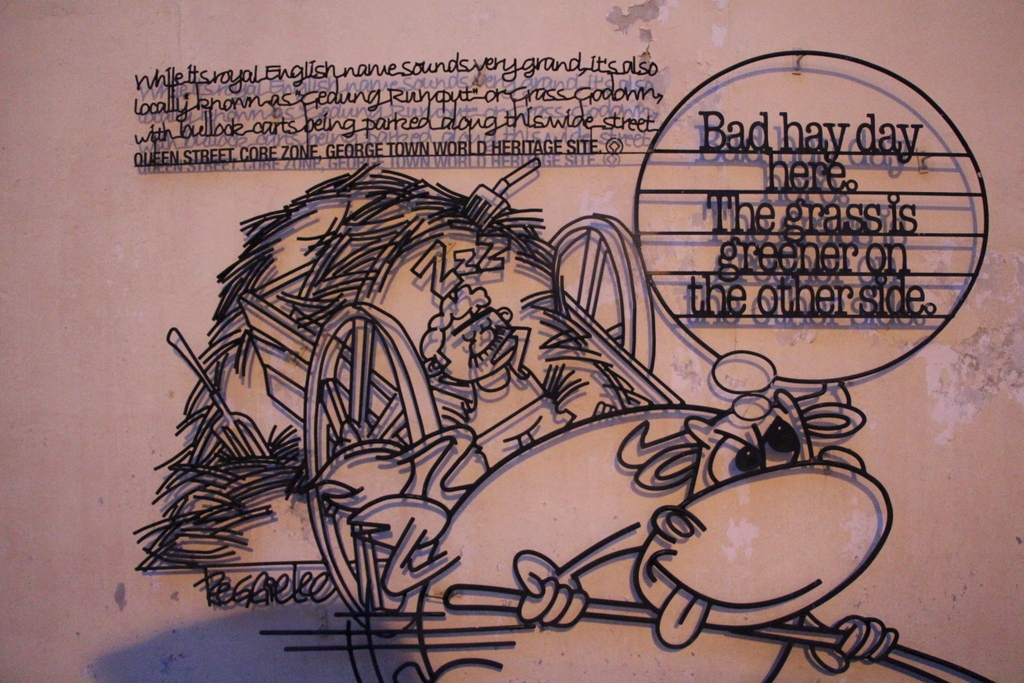 While its royal English name sounds very grand, it's also
locally known as "Gedung Rumput" or Grass Godown,
with bullock carts being parked along this wide street.
QUEEN STREET, CORE ZONE, GEORGE TOWN WORLD HERITAGE SITE.
Bad hay day
here.
The grass is
greener on
the other side.
Zzz
Reggie Lee